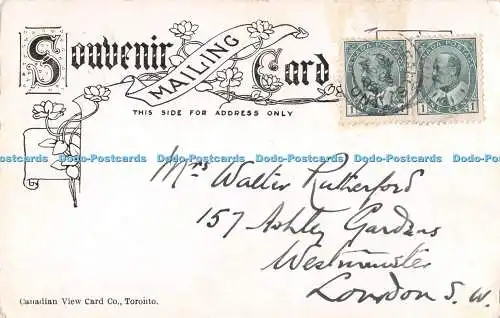 Souvenir
MAILING
Card
THIS SIDE FOR ADDRESS ONLY
CANADA POSTAGE
1 1
Dodo-Postcards Dodo-Postcards Dodo-Postcards Dodo-Postcards Dodo-Postcards
Mrs Walter Rutherford
157 Ashley Gardens
Westminster
London S. W.
Canadian View Card Co., Toronto.